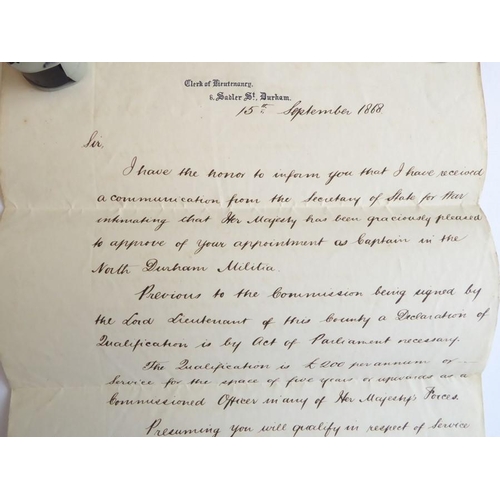 Clerk of Lieutenancy,
6, Sadler St, Durham.
15th September 1868
Sir,
I have the honor to inform you that I have received
a communication from the Secretary of State for War
intimating that Her Majesty has been graciously pleased
to approve of your appointment as Captain in the
North Durham Militia.
Previous to the Commission being signed by
the Lord Lieutenant of this County a Declaration of
Qualification is by Act of Parliament necessary.
The Qualification is £200 per annum or
Service for the space of five years or upwards as a
Commissioned Officer in any of Her Majesty's Forces.
Presuming you will qualify in respect of Service